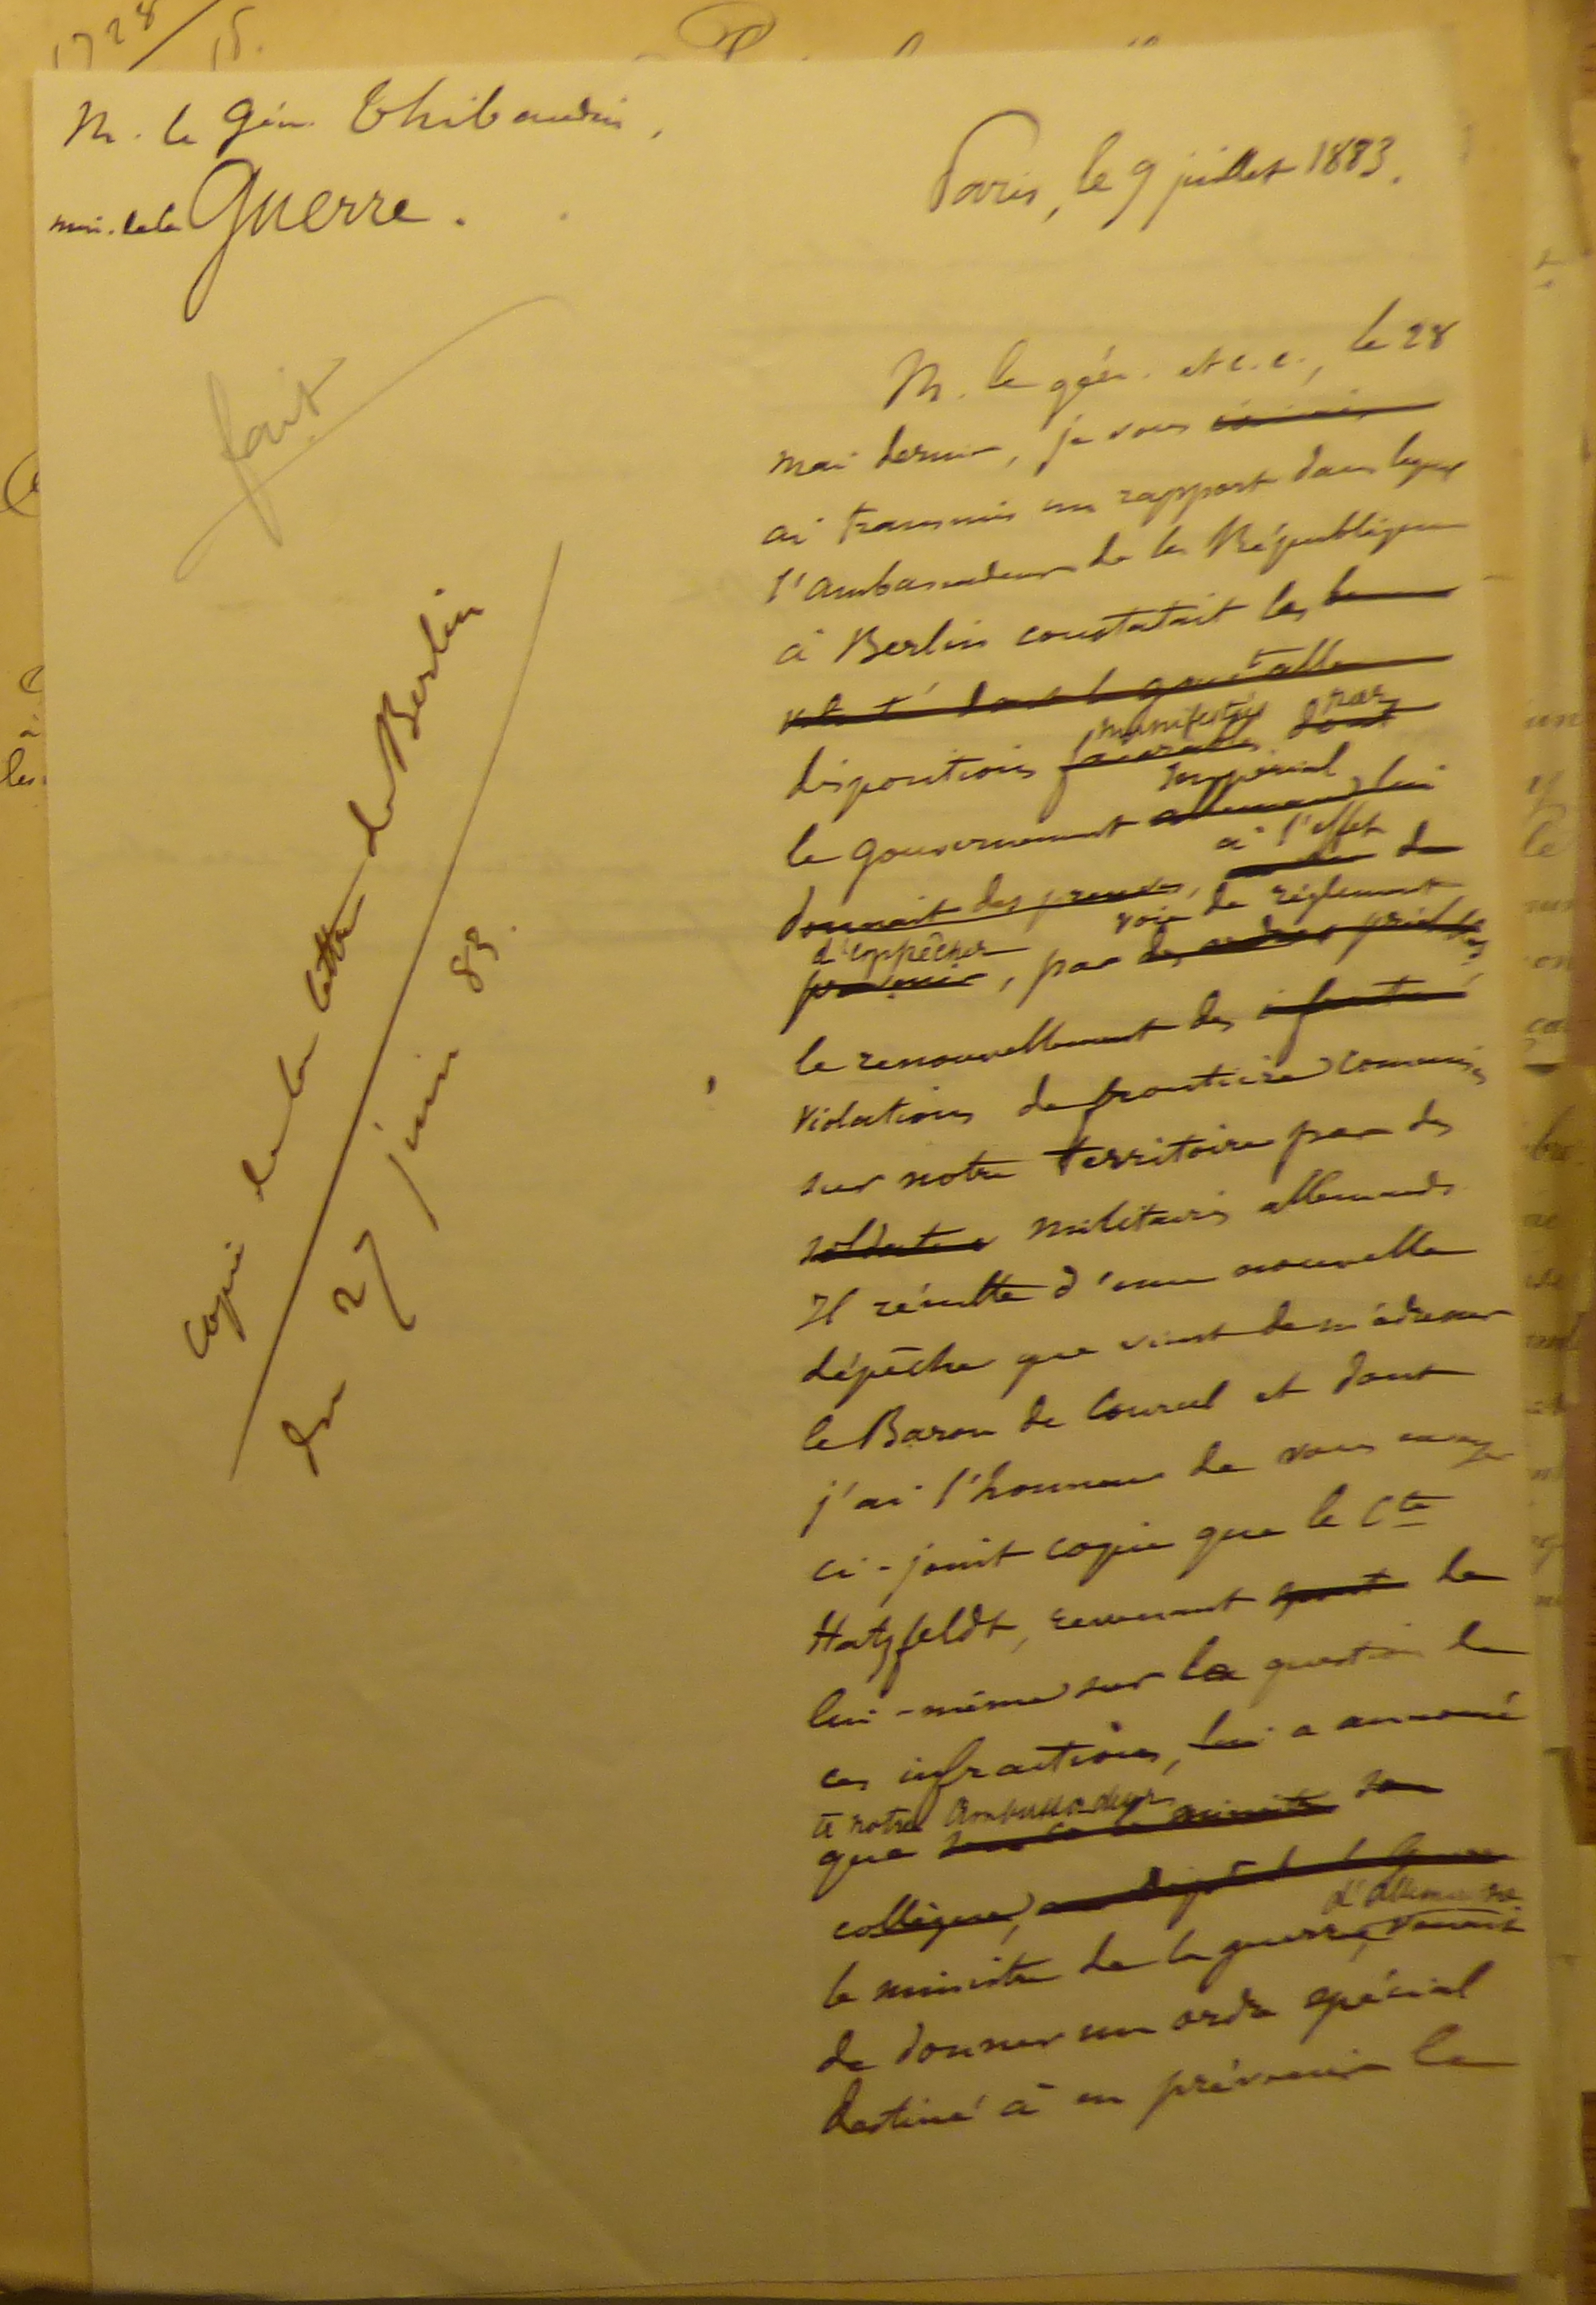 1728
15.
M. le Gén. Thibaudin,
min. de la Guerre.
Paris, le 9 juillet 1883.
fait
copie de la lettre de Berlin
du 27 juin 83.
M. le gén. et c. c., le 28
mai dernier, je vous
ai transmis un rapport dans lequel
l'ambassadeur de la République
à Berlin constatait les
dont le gouvt
manifestées par
dispositions favorables dont
impérial
le gouvernement allemand lui
à l'effet
donnait des preuves, de
d'empêcher voie de règlement
prévenir, par des ordres
le renouvellement des
violations de frontière commises
sur notre territoire par des
soldats militaires allemands
Il résulte d'une nouvelle
dépêche que vient de m'adresser
le Baron de Courcel et dont
j'ai l'honneur de vous envoyer
ci-joint copie que le Cte
Hatzfeldt, revenant de
lui-même sur la question de
ces infractions, lui a annoncé
à notre Ambassadeur
que son
collègue,
d'Allemagne
le ministre de la guerre, venait
de donner un ordre spécial
destiné à en prévenir le